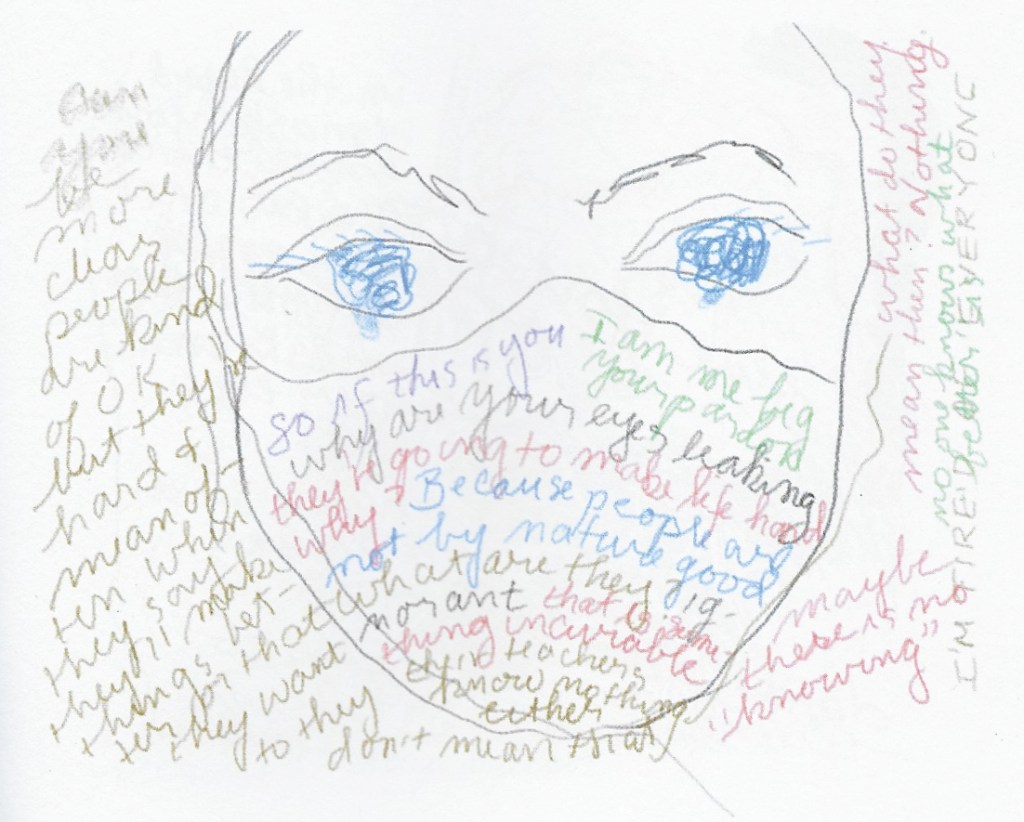 so if this is you
I am me beg
your pardon
why are your eyes leaking
they're going to make life hard
why?
Because people are
not by nature good
what are they? ig-
norant
that is some
thing incurable
their teachers
know nothing
either
life
more
clear
people
are kind
of OK
but they're
hard &
mean of-
ten when
they say
they'll make
things bet-
ter or that
they want
to they
don't mean that
what do they
mean then? Nothing.
no one knows what
better is
I'M TIRED EVERYONE
maybe
there is no
"knowing"